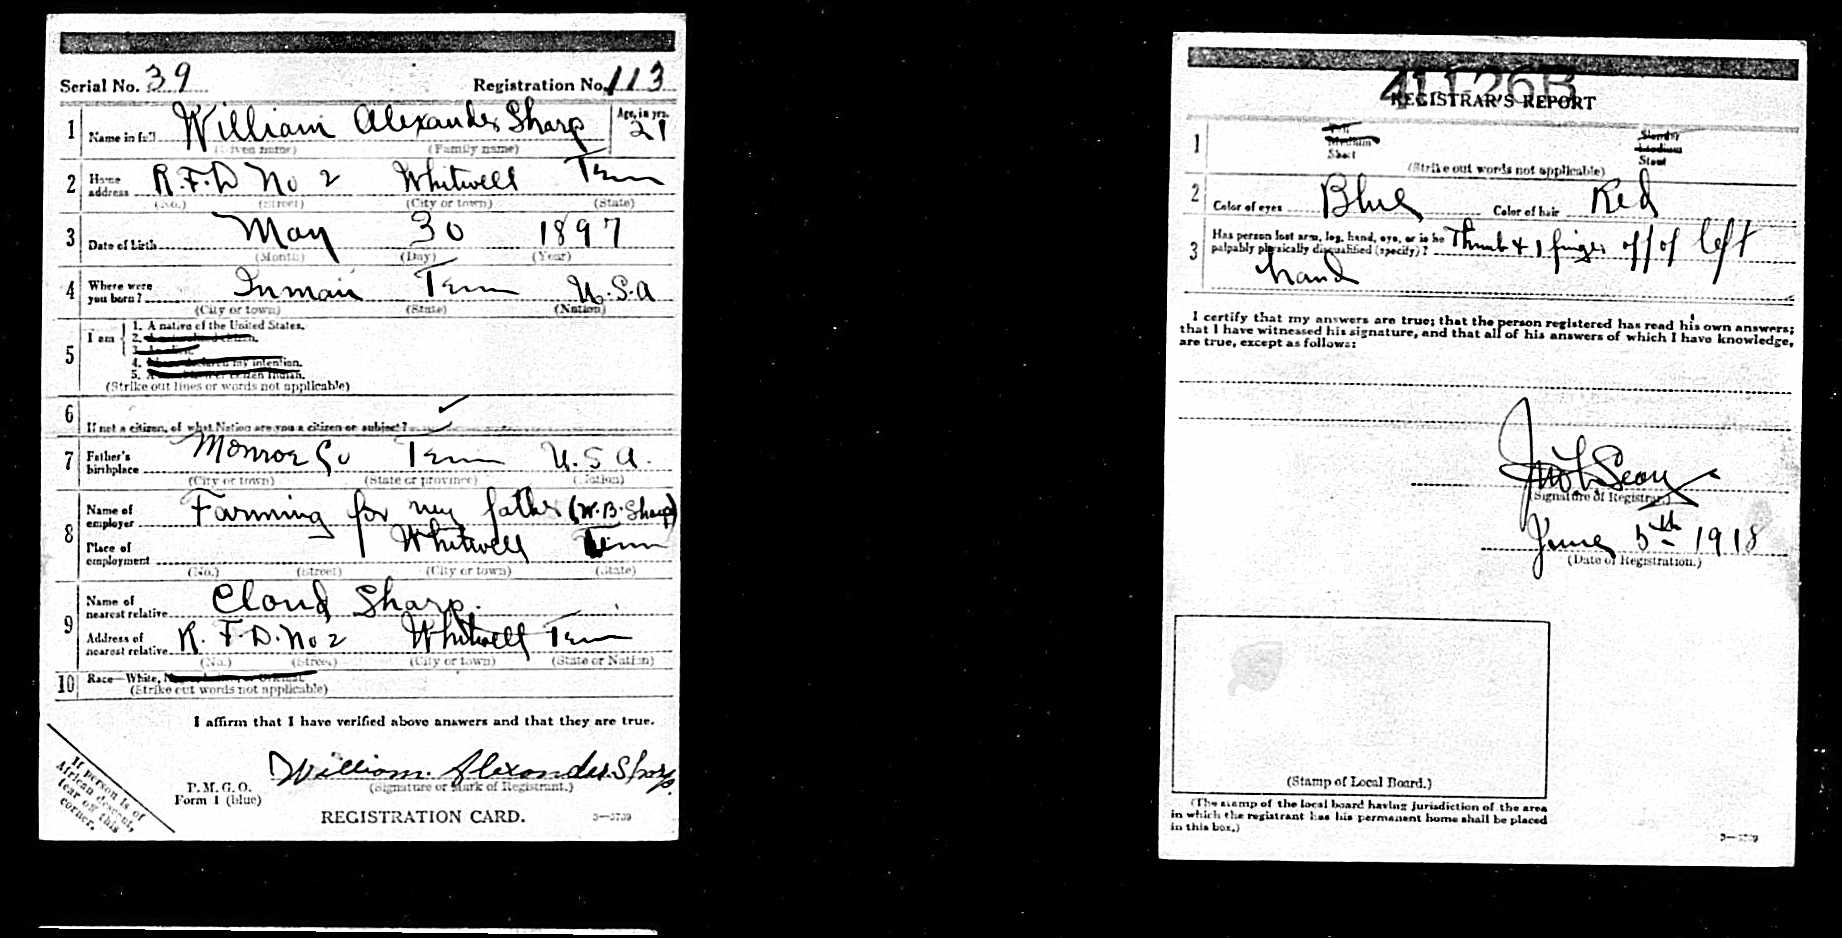 Serial No. 39 Registration No. 113
1 Name in full William Alexander Sharp Age, in yrs. 21
(Given name) (Family name)
2 Home address R.F.D No 2 Whitwell Tenn
(No.) (Street) (City or town) (State)
3 Date of birth May 30 1897
(Month) (Day) (Year)
4 Where were you born? Inman Tenn U.S.A
(City or town) (State) (Nation)
5 I am
1. A native of the United States.
2.
3.
4. my intention.
5.
(Strike out lines or words not applicable)
6 If not a citizen, of what Nation are you a citizen or subject? ✓
7 Father's birthplace Monroe Co Tenn U.S.A.
(City or town) (State or province) (Nation)
8 Name of employer Farming for my father (W.B. Sharp)
Place of employment Whitwell Tenn
(No.) (Street) (City or town) (State)
9 Name of nearest relative Cloud Sharp.
Address of nearest relative R.F.D. No 2 Whitwell Tenn
(No.) (Street) (City or town) (State or Nation)
10 Race—White,
(Strike out words not applicable)
I affirm that I have verified above answers and that they are true.
William. Alexander. Sharp.
(Signature or Mark of Registrant.)
P. M. G. O.
Form 1 (blue)
REGISTRATION CARD.
If person is of
African descent,
tear off this
corner.
41-1-26B
REGISTRAR'S REPORT
1 Tall Medium Short Slender Medium Stout
(Strike out words not applicable)
2 Color of eyes Blue Color of hair Red
3 Has person lost arm, leg, hand, eye, or is he Thumb + 1 finger off of left
palpably physically disqualified (specify)?
hand
I certify that my answers are true; that the person registered has read his own answers;
that I have witnessed his signature, and that all of his answers of which I have knowledge,
are true, except as follows:
(Signature of Registrar.)
June 5th 1918
(Date of Registration.)
(Stamp of Local Board.)
(The stamp of the local board having jurisdiction of the area
in which the registrant has his permanent home shall be placed
in this box.)